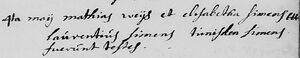 4ta maij mathias weijs et elisabetha simens
laurentius simens tunisden simens
fuerunt testes.